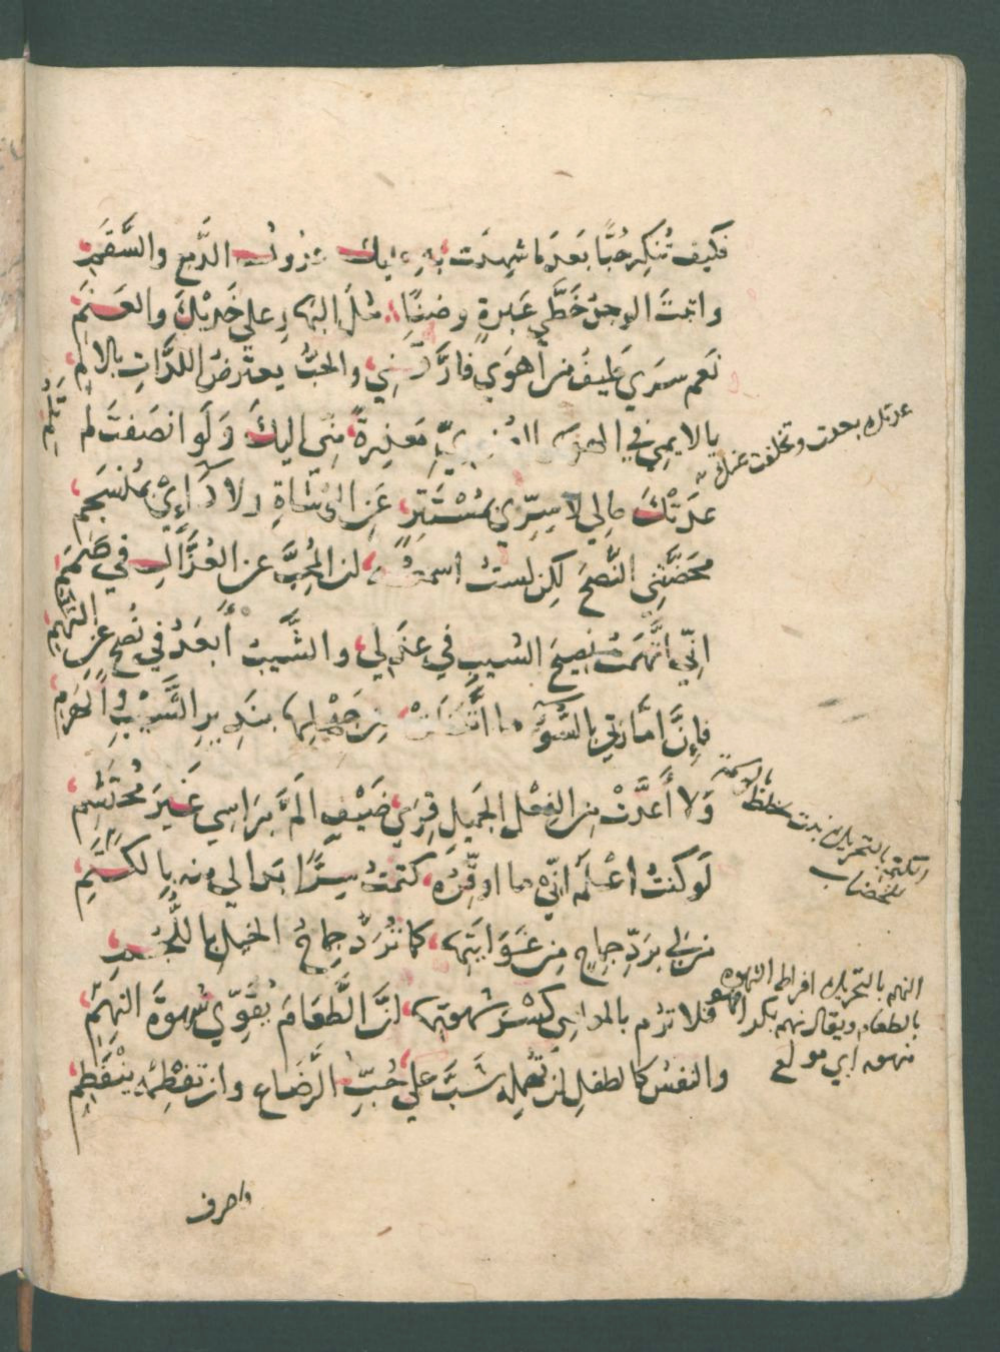 فكيف تُنكِر حُبًّا بَعدَ ما شهِدَت به عليك عدول الدَّمع والسَّقَمِ
واثبتَ الوجدُ خَطَّي عَبرةٍ وضنًا مثلَ البهارِ علي خَدّيْكَ والعَنَمِ
نَعَم سَرَي طَيفُ من أهوَي فارَّقَني والحُبُّ يعترضُ اللذَّاتِ بالالمِ
يا لايمِي في الهوي العُذريِّ مَعذِرةً مني اليكَ وَلَو انصَفتَ لم تَلُمِ
عدَتْكَ حالي لا سِرِّي بمُسْتَترٍ عَن الوُشاةِ ولا دَآءِيْ بمُنسَجِمِ
مَحَضْتَنِي النُّصحَ لكن لستُ اسمعُهُ ان المُحِبَّ عن العُذَّالِ في صَمَمِ
انّي اتَّهَمتُ نصيحَ الشيبِ في عذلي والشَّيبُ أبعَدُ في نُصحٍ عن التُّهَمِ
فإنَّ امَّارتي بالسُّوءِ ما اتَّعَظَتْ من جَهْلِها بنَذيرِ الشَّيْبِ والهَرَمِ
وَلا أعَدَّتْ من الفِعْلِ الجَميلِ قِرَي ضَيْفٍ المَّ بِرَاسِي غَيرَ مُحتَشِمِ
لَو كنتُ اعْلَمُ انّي ما اوقّرُه كتمتُ سِرًّا بَدا لي منه بالكَتَمِ
من لي برَدِّ جِماحٍ مِن غَوَايَتِها كما تُرَدُّ جِماحُ الخيلِ باللُّجُمِ
فلا تَرُم بالمعاصي كسْرَ شهوتِها انَّ الطَّعَامَ يُقَوّي شهوَةَ النَهِمِ
والنفسُ كالطفلِ ان تُهمِله شَبَّ علي حُبِّ الرَّضاع وان تفْطِمْه ينْفَطِمِ
عدتك بعدت وتخلفت عنك
والكتم بالتحريك نبت يخلط بالوسمة
للخضاب
النهم بالتحريك افراط الشهوه
بالطعام ويقال نهم بكذا فهو
منهوم اي مولع
واصرف